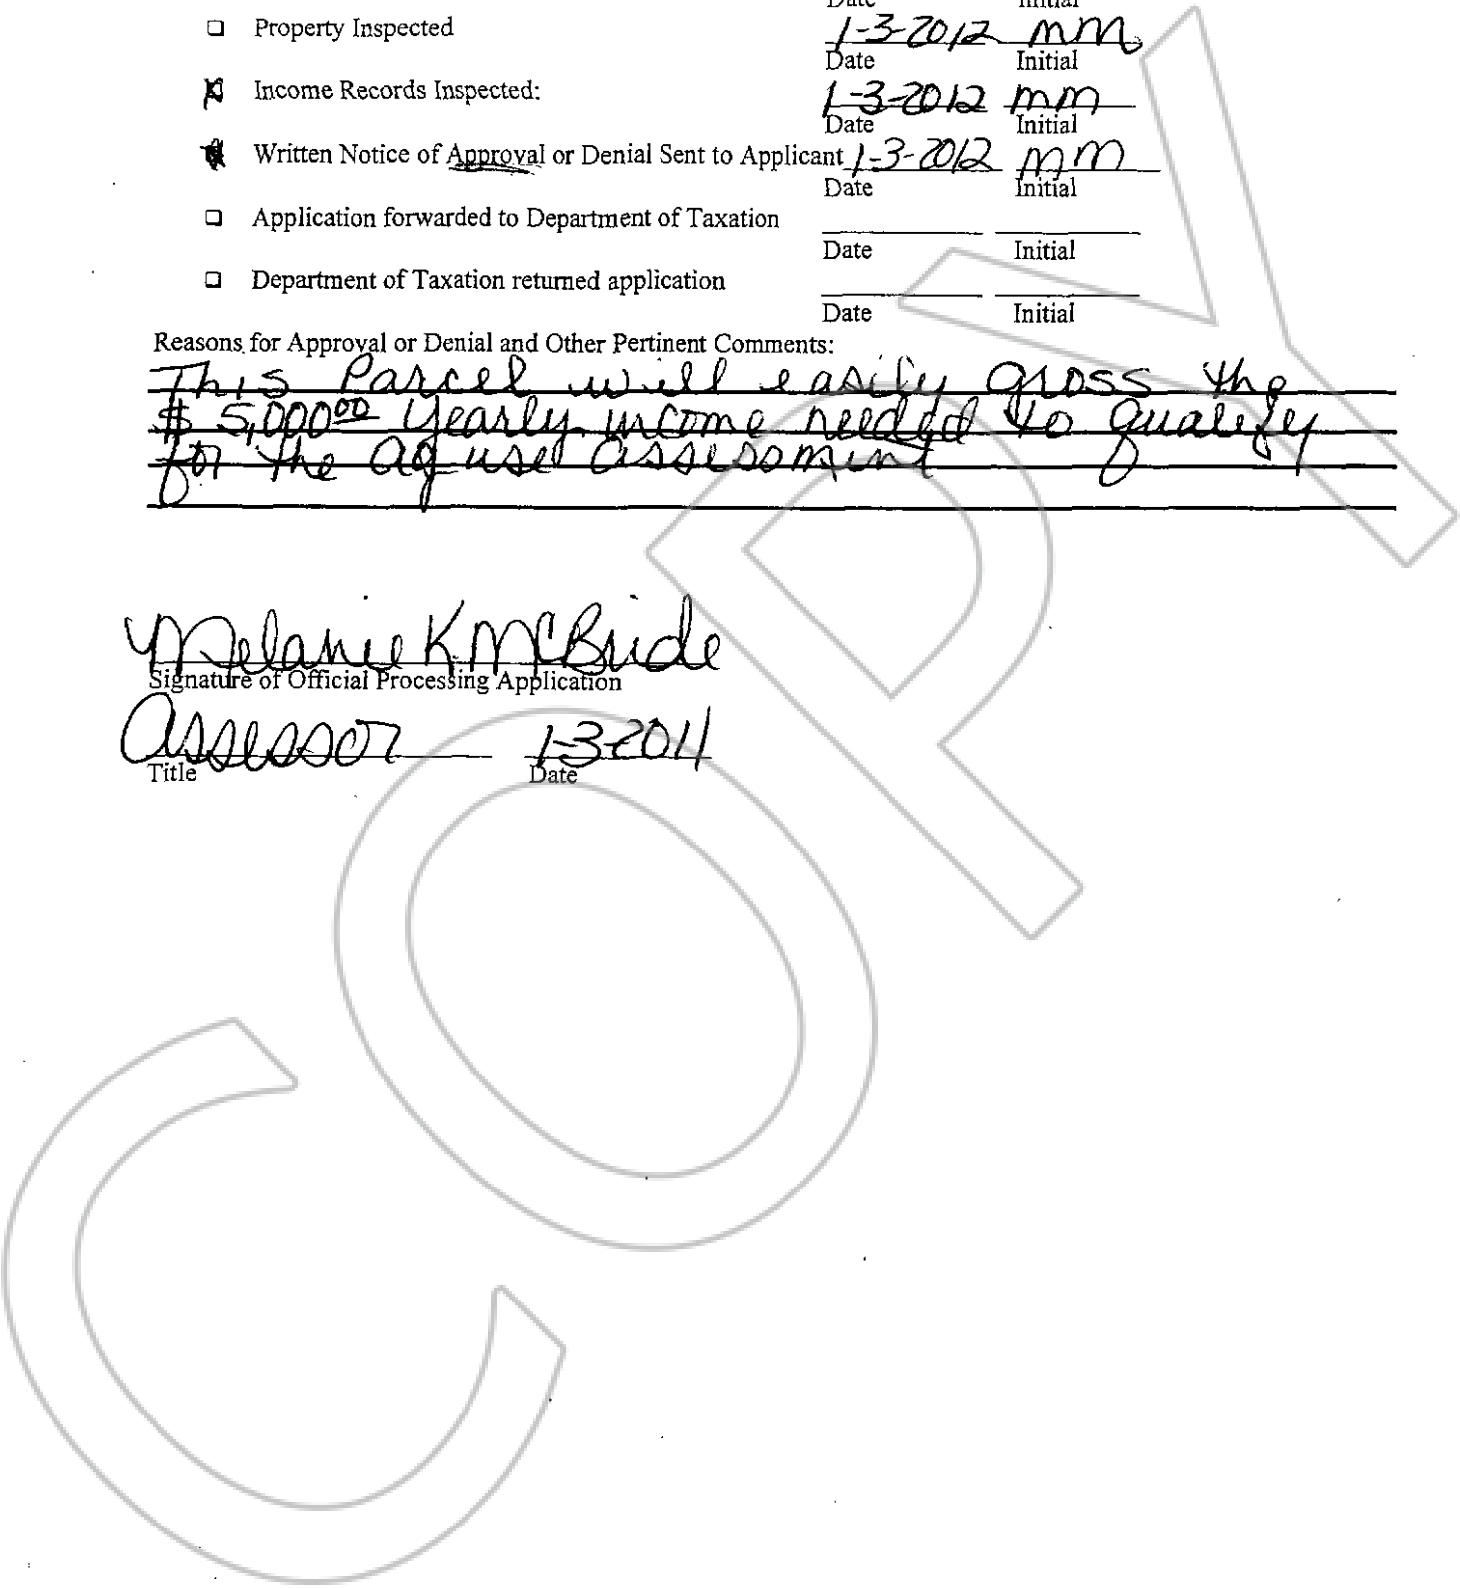 Date Initial
☐ Property Inspected 1-3-2012 mm
Date Initial
☒ Income Records Inspected: 1-3-2012 mm
Date Initial
☒ Written Notice of Approval or Denial Sent to Applicant 1-3-2012 mm
Date Initial
☐ Application forwarded to Department of Taxation
Date Initial
☐ Department of Taxation returned application
Date Initial
Reasons for Approval or Denial and Other Pertinent Comments:
This Parcel will easily gross the
$ 5,000.00 yearly income needed to qualify
for the ag use assessment
Melanie K McBride
Signature of Official Processing Application
Assessor 1-3-2011
Title Date
COPY